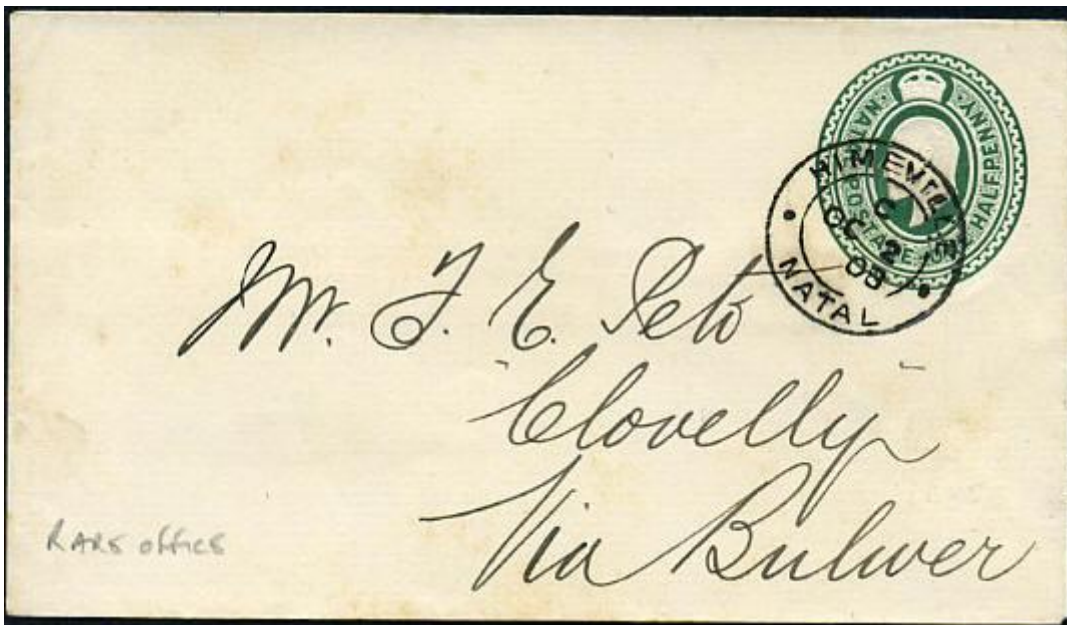 NATAL POSTAGE ONE HALFPENNY
HIMEVILLE
C
OC 2
03
NATAL
Mr. T. E. Peto
"Clovelly"
Via Bulwer
RARE OFFICE